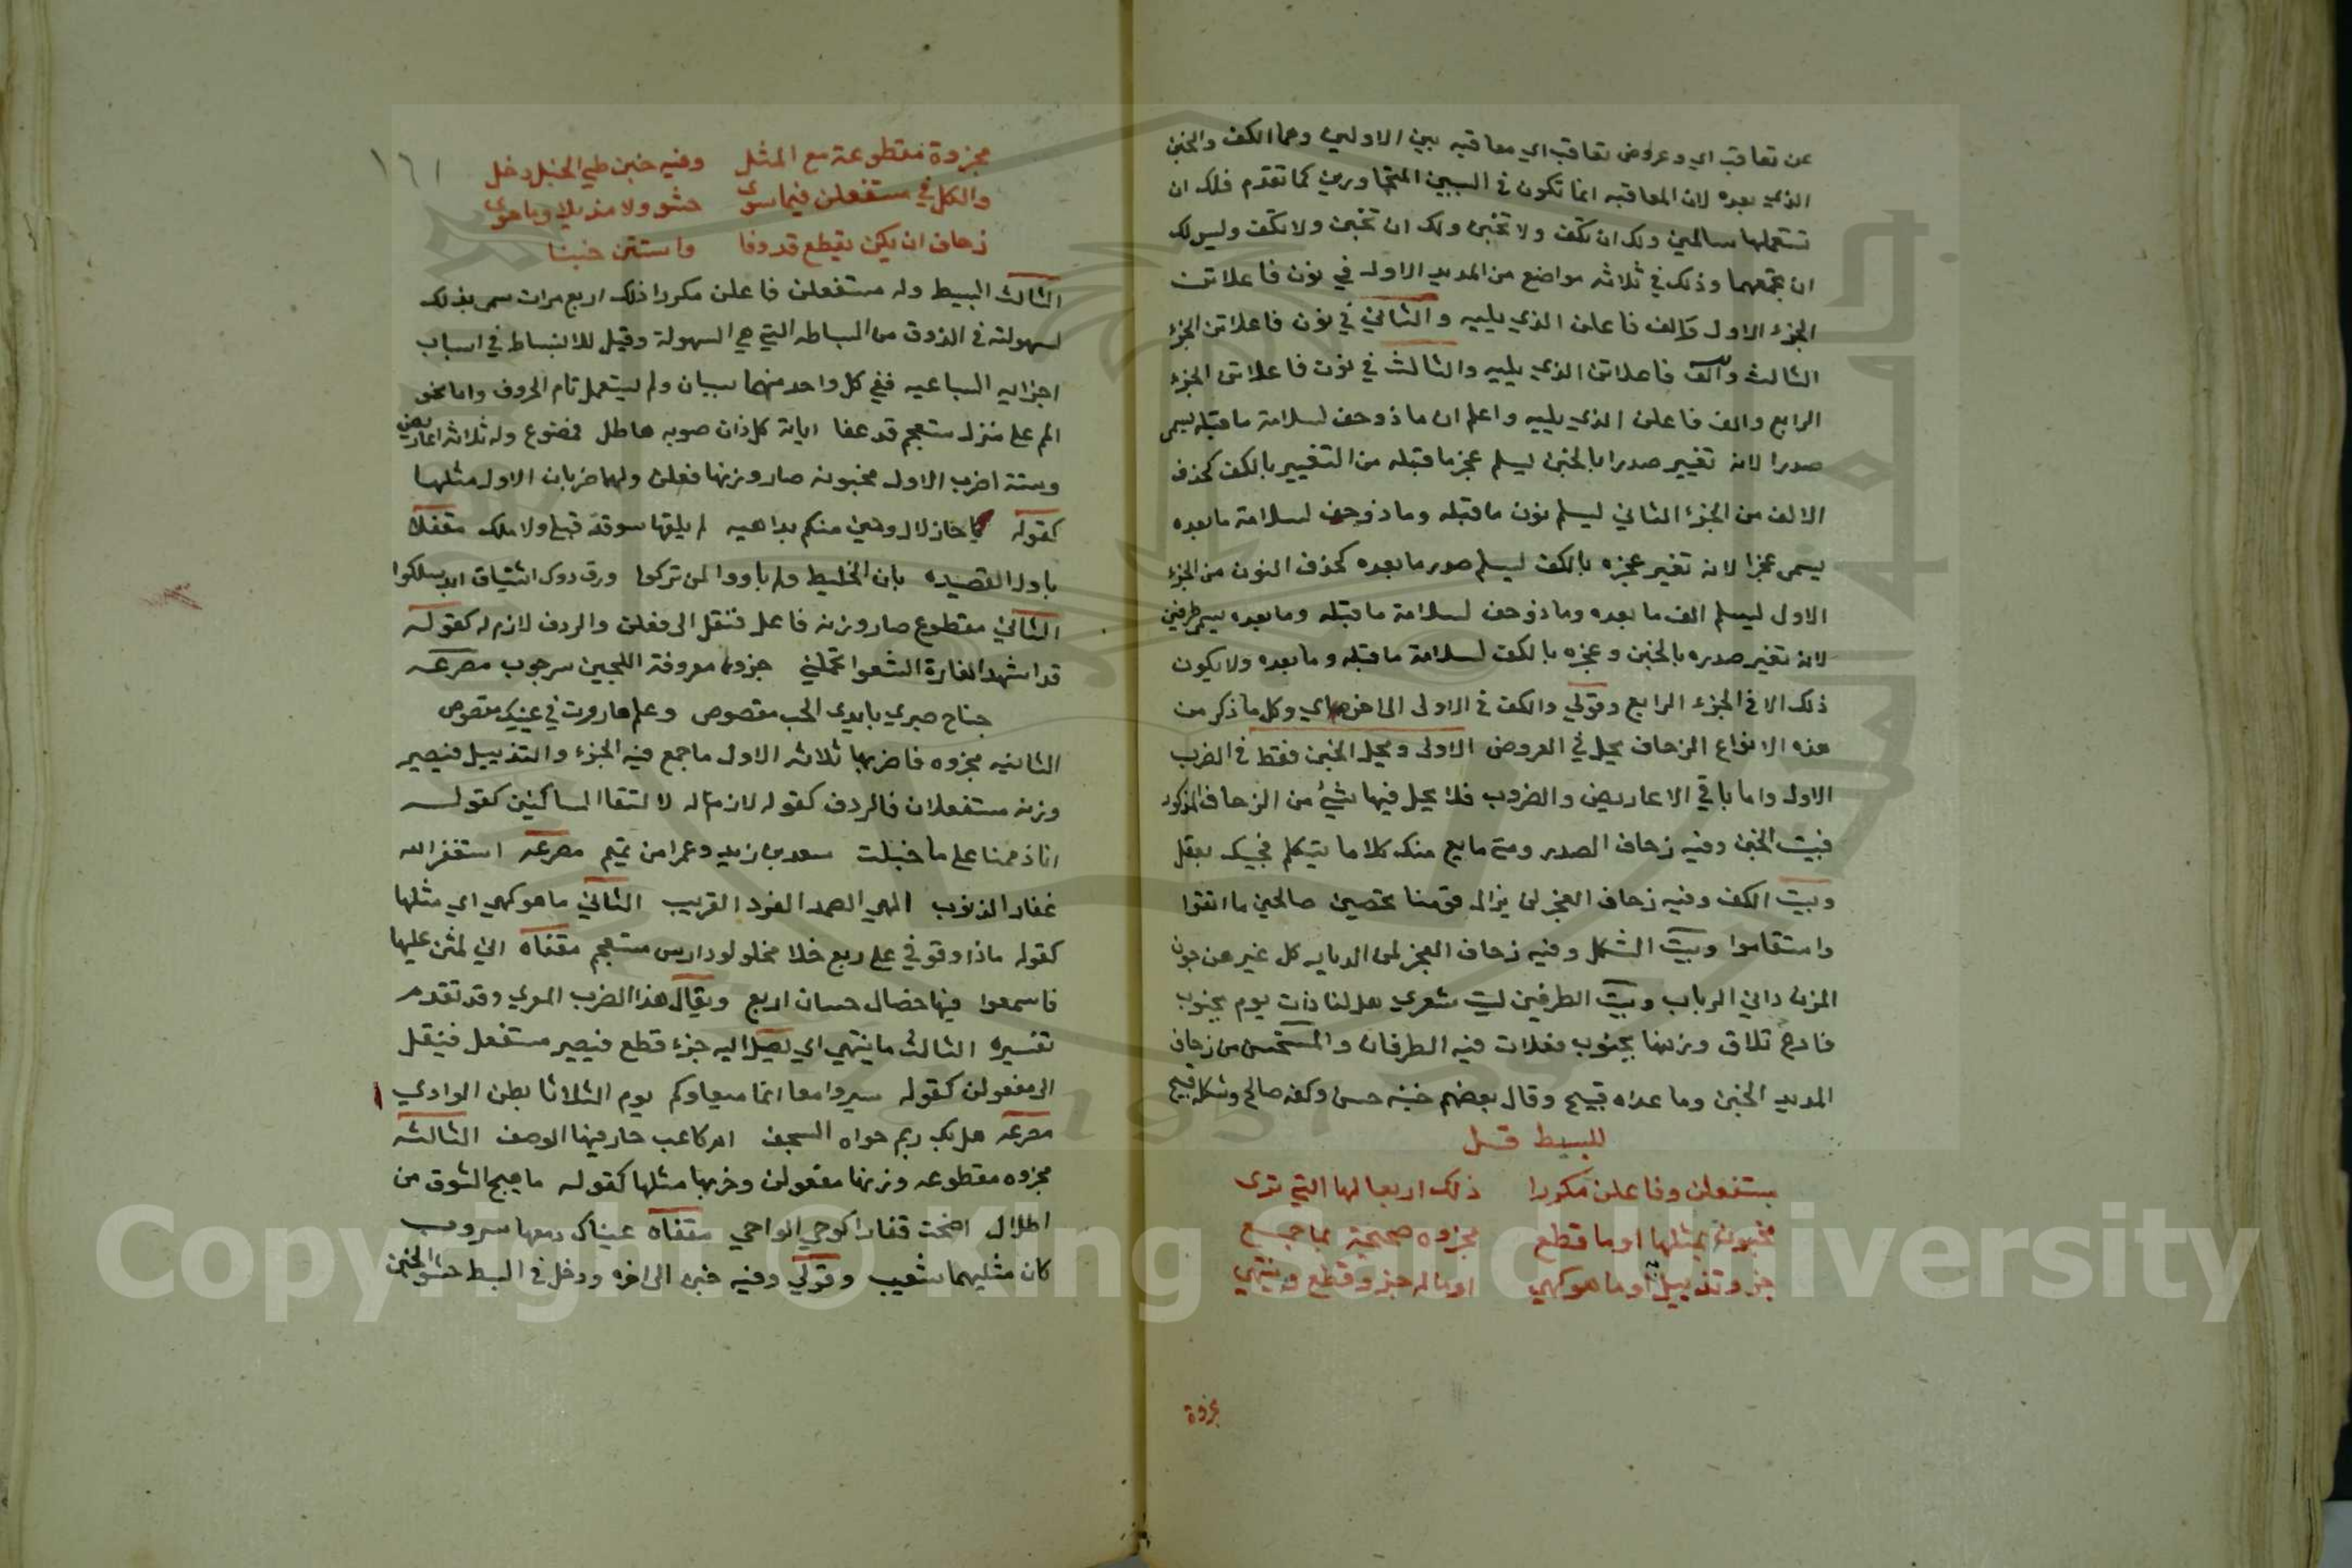 عن تعاقب اي وعروض تعاقب اي معاقبه بين الاولين وهما الكف والخبن
الذي بعده لان المعاقبه انما تكون في السببين المتجاورين كما تقدم فلك ان
تستعملها سالمين ولك ان تكف ولا تخبن ولك ان تخبن ولا تكف وليس لك
ان تجمعهما وذلك في ثلاثه مواضع من المديد الاول في نون فاعلاتن
الجزء الاول والف فاعلن الذي يليه والثاني في نون فاعلاتن الجزء
الثالث والف فاعلاتن الذي يليه والثالث في نون فاعلاتن الجزء
الرابع والف فاعلن الذي يليه واعلم ان ما زوحف لسلامة ما قبله يسمى
صدرا لانه تغيير صدرا بالخبن ليسلم عجز ما قبله من التغيير بالكف كحذف
الالف من الجزء الثاني ليسلم نون ما قبله وما زوحف لسلامة ما بعده
يسمى عجزا لانه تغير عجزه بالكف ليسلم صدر ما بعده كحذف النون من الجزء
الاول ليسلم الف ما بعده وما زوحف لسلامة ما قبله وما بعده يسمى طرفين
لانه تغير صدره بالخبن وعجزه بالكف لسلامة ما قبله وما بعده ولا يكون
ذلك الا في الجزء الرابع وقولي والكف في الاولى الى اخره اي وكل ما ذكر من
هذه الانواع الزحاف يحل في العروض الاولى ويحل الخبن فقط في الضرب
الاول واما باقي الاعاريض والضروب فلا يحل فيها شيء من الزحاف المذكور
فبيت الخبن وفيه زحاف الصدر ومتى ما يع منك كلاما يتكلم فيجبك بعقل
وبيت الكف وفيه زحاف العجز لن يزال قومنا مخصبين صالحين ما اتقوا
واستقاموا وبيت الشكل وفيه زحاف العجز لمن الديار كل غير هن جون
المزن داني الرباب وبيت الطرفين ليت شعري هل لنا ذات يوم بجنوب
فارع تلاق وزنها بجنوب فعلات فيه الطرفان والمستحسن من زحاف
المديد الخبن وما عداه قبيح وقال بعضهم خبنه حسن وكفه صالح وشكله قبيح
للبسيط قل
مستفعلن وفاعلن مكررا ذلك اربعا لها التي ترى
مخبونة بمثلها او ما قطع مجزوه صحيحة بما جمع
جزو تذييل او ما هو كهي او ما له جزو وقطع وينتهي
مجزوة
١٦١
مجزوة مقطوعة مع المثل وفيه خبن طي الخبل دخل
والكل في مستفعلن فيما سوى حشو ولا مذيلا وما حوى
زحاف ان يكن بقطع قد وفا واستثن خبنا
الثالث البسيط وله مستفعلن فاعلن مكررا ذلك اربع مرات سمى بذلك
لسهولته في الذوق من البساطه التي هي السهولة وقيل للانبساط في اسباب
اجزائه السباعيه ففي كل واحد منهما سببان ولم يستعمل تام الحروف واما نحو
الم على منزل مستعجم قد عفا اياته كل ذان صوبه هاطل فمصنوع وله ثلاثه اعاريض
وستة اضرب الاول مخبونه صار وزنها فعلن ولهما ضربان الاول مثلها
كقوله يا حار لا ارمين منكم بداهيه لم يلقها سوقة قبلي ولا ملك مقفلا
باول القصيده بان الخليط ولم ياووا لمن تركوا وزودوك اشتياقا اية سلكوا
الثاني مقطوع صار وزنه فاعل فنقل الى فعلن والردف لازم له كقوله
قد اشهد الغارة الشعوا تحملني جردا معروقة اللحيين سرحوب مصرعه
جناح صبري بايدي الحب مقصوص وعلم هاروت في عينيك منصوص
الثانيه مجزوه فاضربها ثلاثه الاول ما جمع فيه الجزء والتذييل فيصير
وزنه مستفعلان فالردف كقوله لازم له لالتقا الساكنين كقوله
انا ذممنا على ما خيلت سعد بن زيد وعمرا من تميم مصرعه استغفر الله
غفار الذنوب الهي الصمد الفرد القريب الثاني ما هو كهي اي مثلها
كقوله ماذا وقوفي على ربع خلا مخلولق دارس مستعجم مقفاه اني لمثن عليها
فاسمعوا فيها خصال حسان اربع ويقال هذا الضرب المعري وقد تقدم
تفسيره الثالث ما ينتهي اي يصل اليه جزء قطع فيصير مستفعل فينقل
الى مفعولن كقوله سيروا معا انما ميعادكم يوم الثلاثا بطن الوادي
مصرعه هل بك ريم حواه السجف ام كاعب حار فيها الوصف الثالثه
مجزوه مقطوعه وزنها مفعولن وضربها مثلها كقوله ما هيج الشوق من
اطلال اضحت قفارا كوحي الواحي مقفاه عيناك دمعها سروب
كان مثليهما شعيب وقولي وفيه خبن الى اخره ودخل في البسيط حشوا الخبن
Copyright © King Saud University